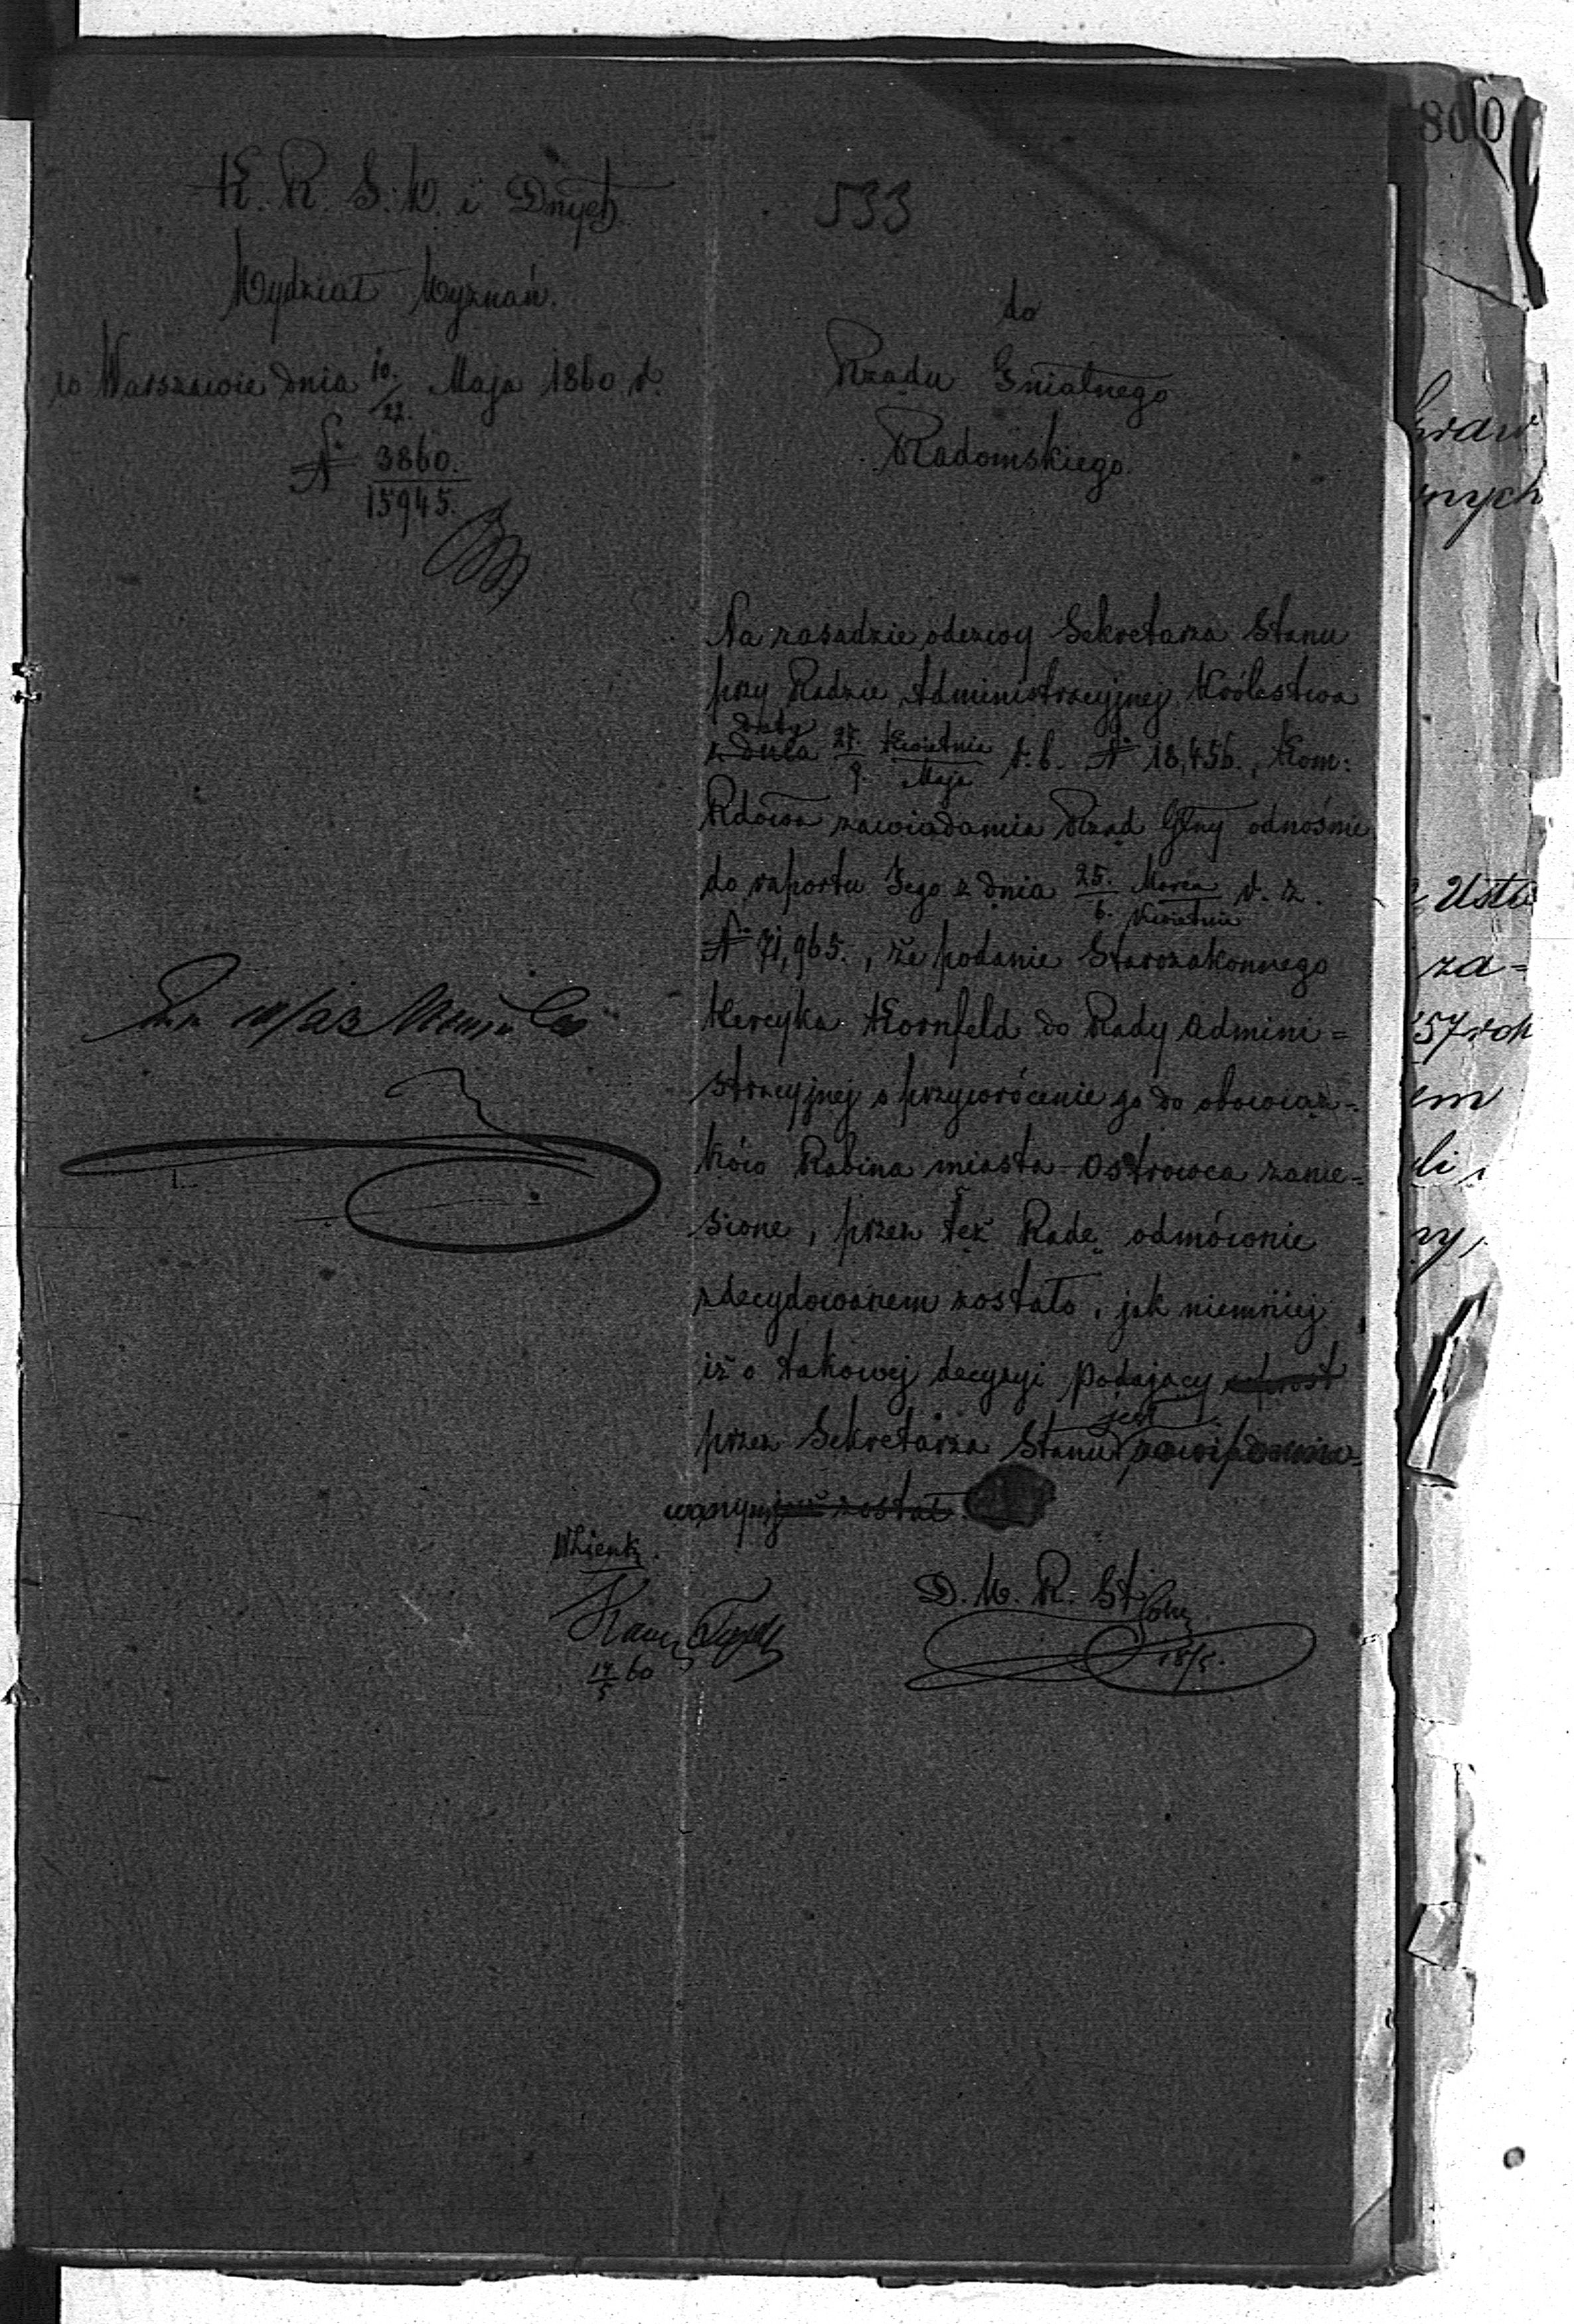 800
K. R. S. W. i Dnych
533
Wydział Wyznań.
w Warszawie dnia 10./22. Maja 1860 r.
N° 3860./15945.
do
Rządu Gnialnego
Radomskiego.
Na zasadzie odezwy Sekretarza Stanu
przy Radzie Administracyjnej Królestwa
daty
z dnia 27. Kwietnia/9. Maja r. b. N° 18,456., Kom:
Rdowa zawiadamia Rząd Glny odnośnie
do raportu Jego z dnia 25. Marca/6. Kwietnia r. z.
N° 71,965., że podanie Starozakonnego
Hercyka Kornfeld do Rady Admini=
stracyjnej o przywrócenie go do obowiąz=
ków Rabina miasta Ostrowca zanie=
sione, przez też Radę odmównie
zdecydowanem zostało, jak niemniej
iż o takowej decyzyi podający wprost
jest
przez Sekretarza Stanu zawiadamia=
wanym już został
D. W. R. St
18/5.
14/5 60
praw
nych
Usta
za=
57 rok
em
li
ny,